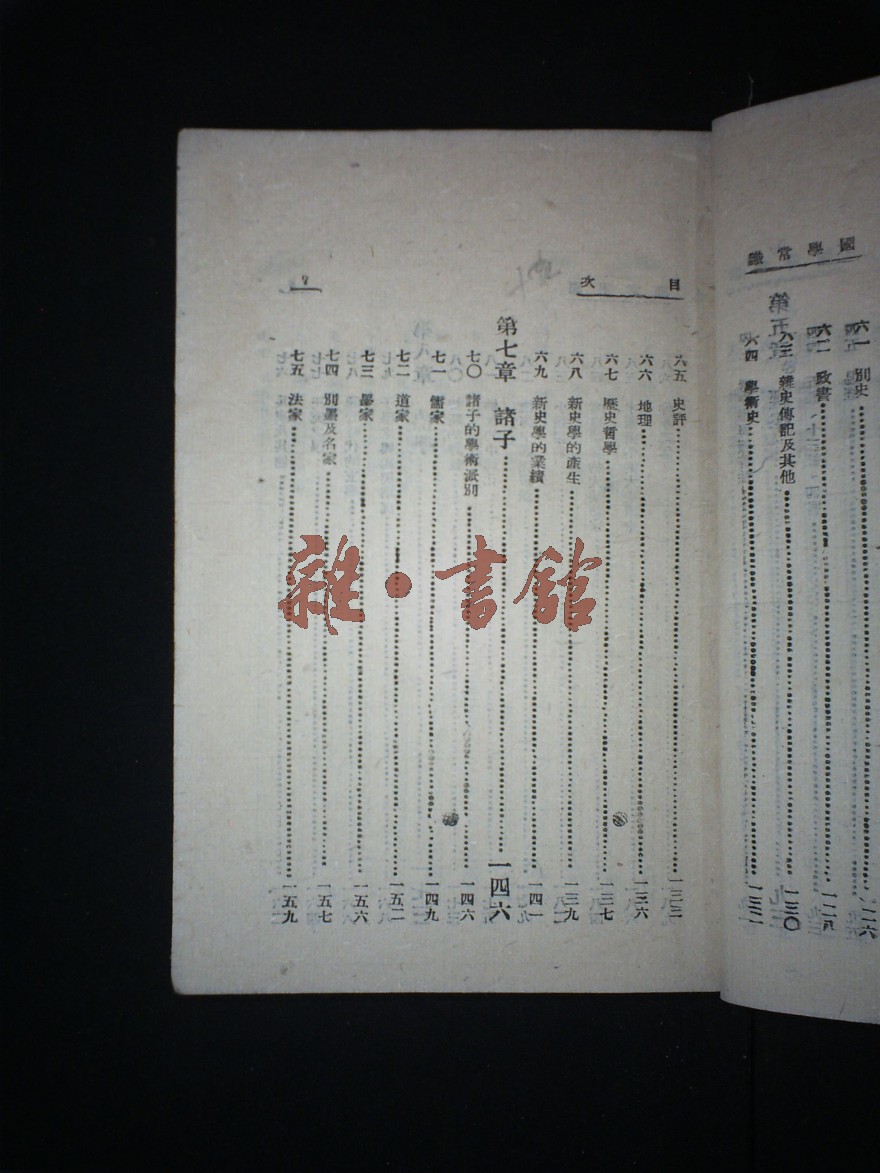 國學常識
六一 別史 一二六
六二 政書 一二八
六三 雜史傳記及其他 一三〇
六四 學術史 一三二
目次
7
六五 史評 一三三
六六 地理 一三六
六七 歷史哲學 一三七
六八 新史學的產生 一三九
六九 新史學的業績 一四一
第七章 諸子 一四六
七〇 諸子的學術派別 一四六
七一 儒家 一四九
七二 道家 一五二
七三 墨家 一五六
七四 別墨及名家 一五七
七五 法家 一五九
雜·書館